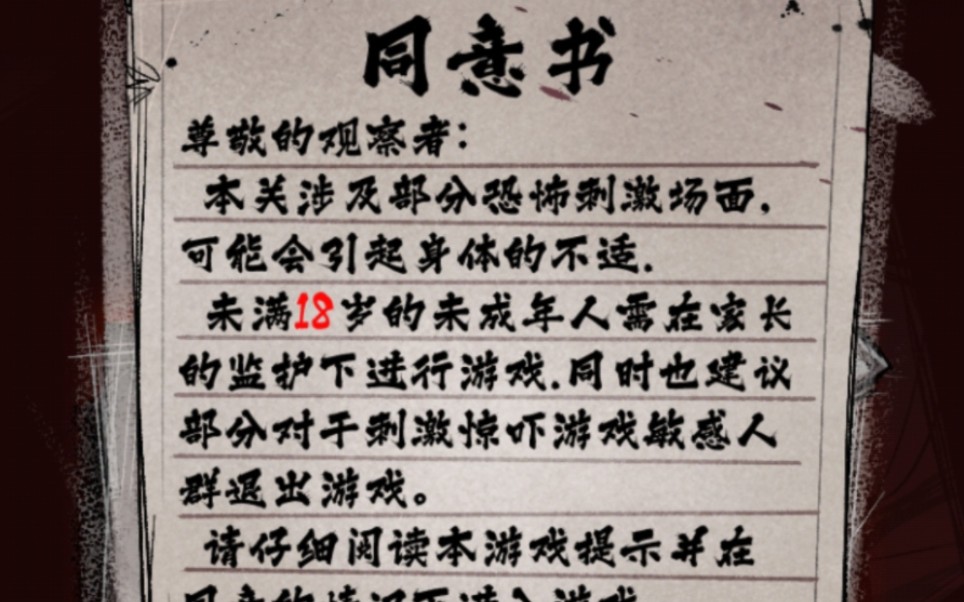 同意书
尊敬的观察者：
本关涉及部分恐怖刺激场面，
可能会引起身体的不适.
未满18岁的未成年人需在家长
的监护下进行游戏.同时也建议
部分对于刺激惊吓游戏敏感人
群退出游戏。
请仔细阅读本游戏提示并在
同意的情况下进入游戏